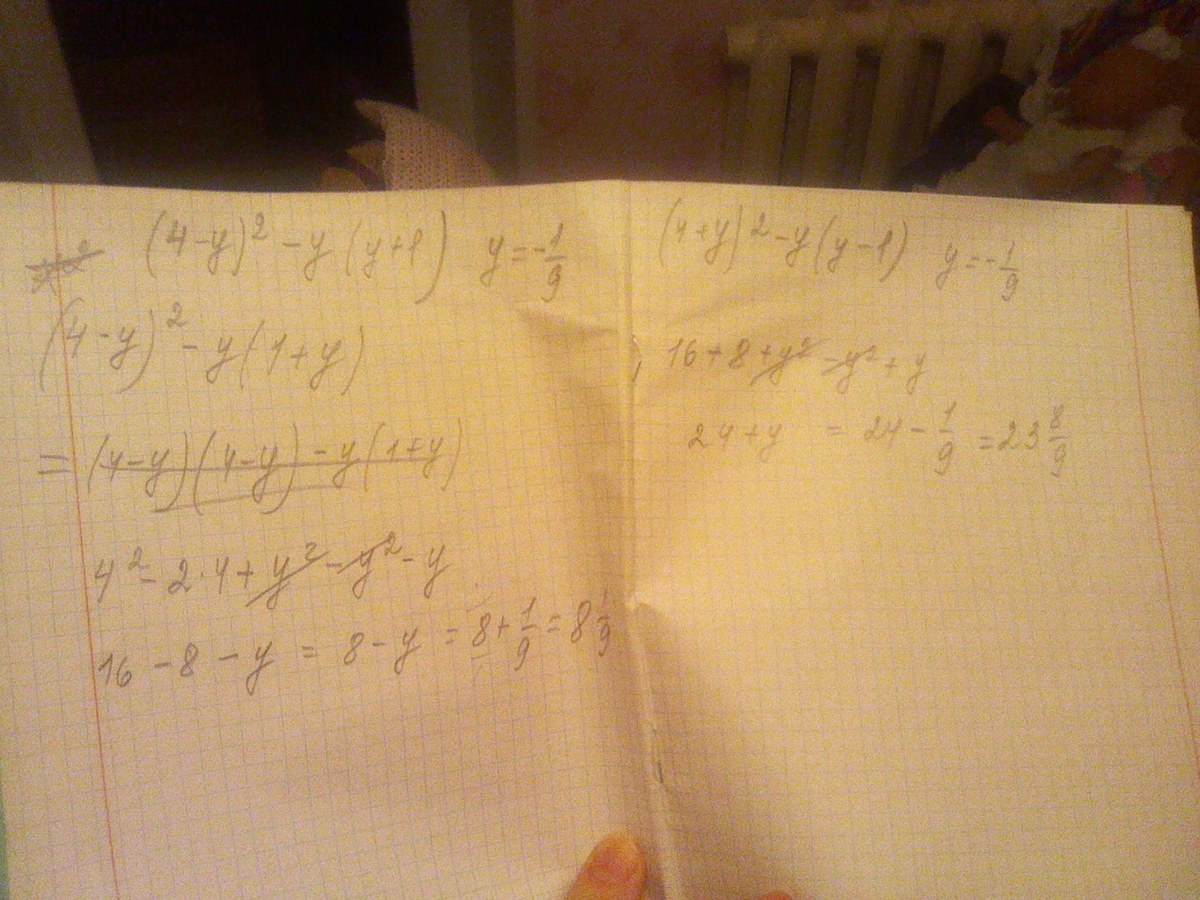 (4-y)² - y(y+1) y = -1/9
(4-y)² - y(1+y)
= (4-y)(4-y) - y(1+y)
4² - 2·4 + y² - y² - y
16 - 8 - y = 8 - y = 8 + 1/9 = 8 1/9
(4+y)² - y(y-1) y = -1/9
16 + 8 + y² - y² + y
24 + y = 24 - 1/9 = 23 8/9